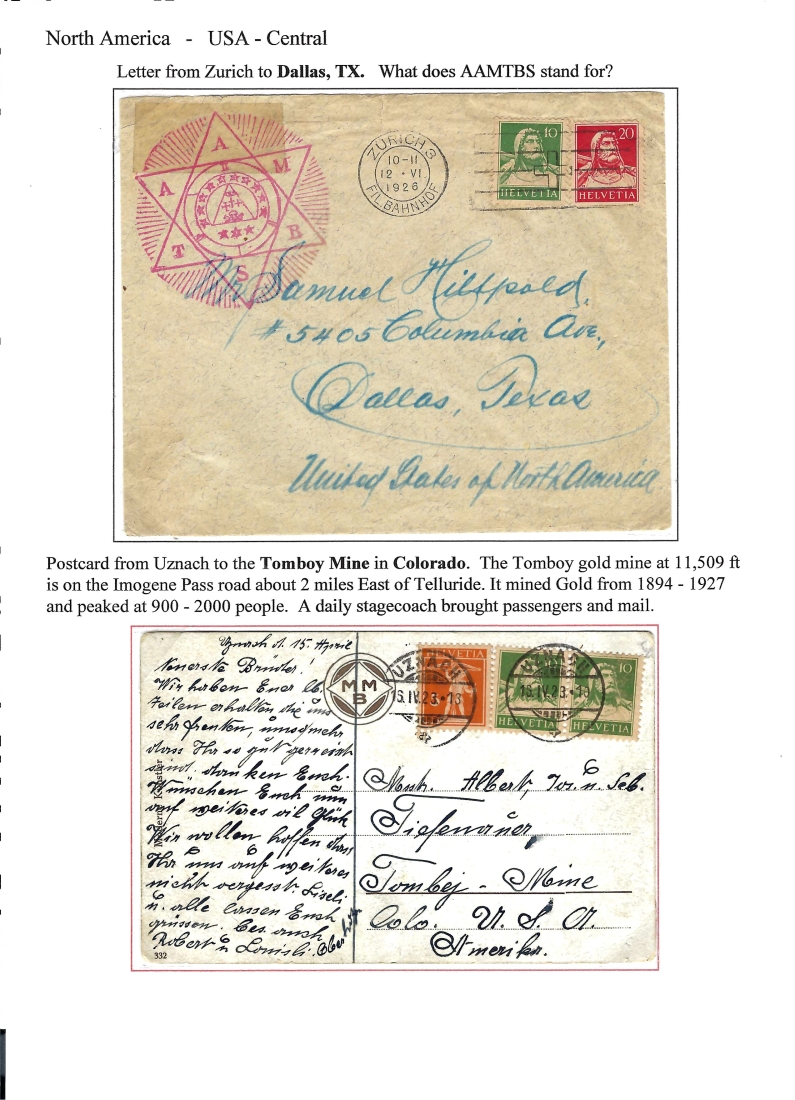 North America - USA - Central
Letter from Zurich to Dallas, TX. What does AAMTBS stand for?
A
A M
T B
S
ZÜRICH 3
10-11
12 · VI
1926
FIL. BAHNHOF
10
HELVETIA
20
HELVETIA
Mr Samuel Hiltpold,
#5405 Columbia Ave,
Dallas, Texas
United States of North America
Postcard from Uznach to the Tomboy Mine in Colorado. The Tomboy gold mine at 11,509 ft
is on the Imogene Pass road about 2 miles East of Telluride. It mined Gold from 1894 - 1927
and peaked at 900 - 2000 people. A daily stagecoach brought passengers and mail.
Uznach d. 15. April
Brüder!
Wir haben Euer lb.
Zeilen erhalten die uns
sehr freuten, umsomehr
dass Ihr so gut gereist
sind, danken Euch.
Wünschen Euch nun
auf weiteres vil Glük
Wir wollen hoffen dass
Ihr uns auf weiteres
nicht vergesst. Liseli
u. alle lassen Euch
grüssen. bes. auch
Robert u Louisli.
332
MM
B
HELVETIA
UZNACH
16.IV.23-18
HELVETIA
UZNACH
16.IV.23-18
10
HELVETIA
Albert, Jos. u. Seb.
Tiefenauer,
Tombej - Mine
Colo. U. S. A.
Amerika.